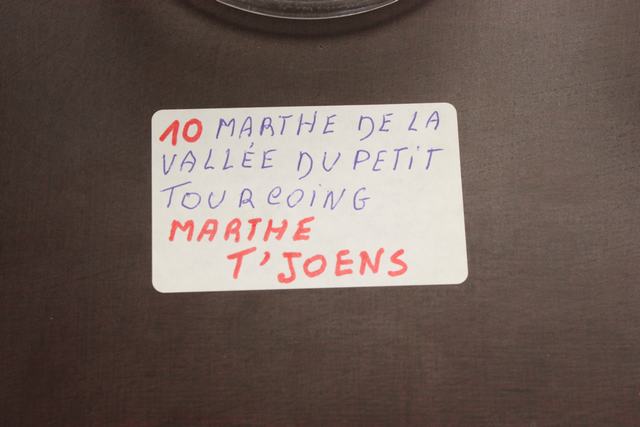 10 MARTHE DE LA
VALLÉE DU PETIT
TOURCOING
MARTHE
T'JOENS